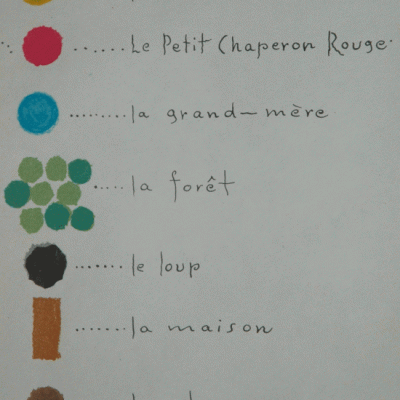 Le Petit Chaperon Rouge
la grand-mère
la forêt
le loup
la maison